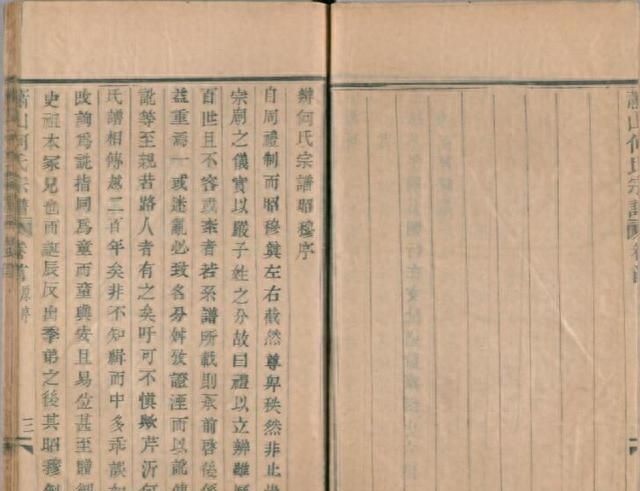 蕭山何氏宗譜
辨何氏宗譜昭穆序
自周禮制而昭穆與左右截然尊卑秩然非止
宗廟之儀實以嚴子姓之分故曰禮以立辨雖
百世且不容或紊者若系譜所載則承前啓後
益重焉一或迷亂必致名分舛攷證湮而以訛
訛等至親若路人者有之矣吁可不慎歟芹沂何
氏譜相傳越二百年矣非不知輯而中多乖誤如
攺詢為詵指同為童而童與安且易位甚至
史祖本冢兄也而誕辰反出季弟之後其昭穆
蕭山何氏宗譜 卷首 原序 三